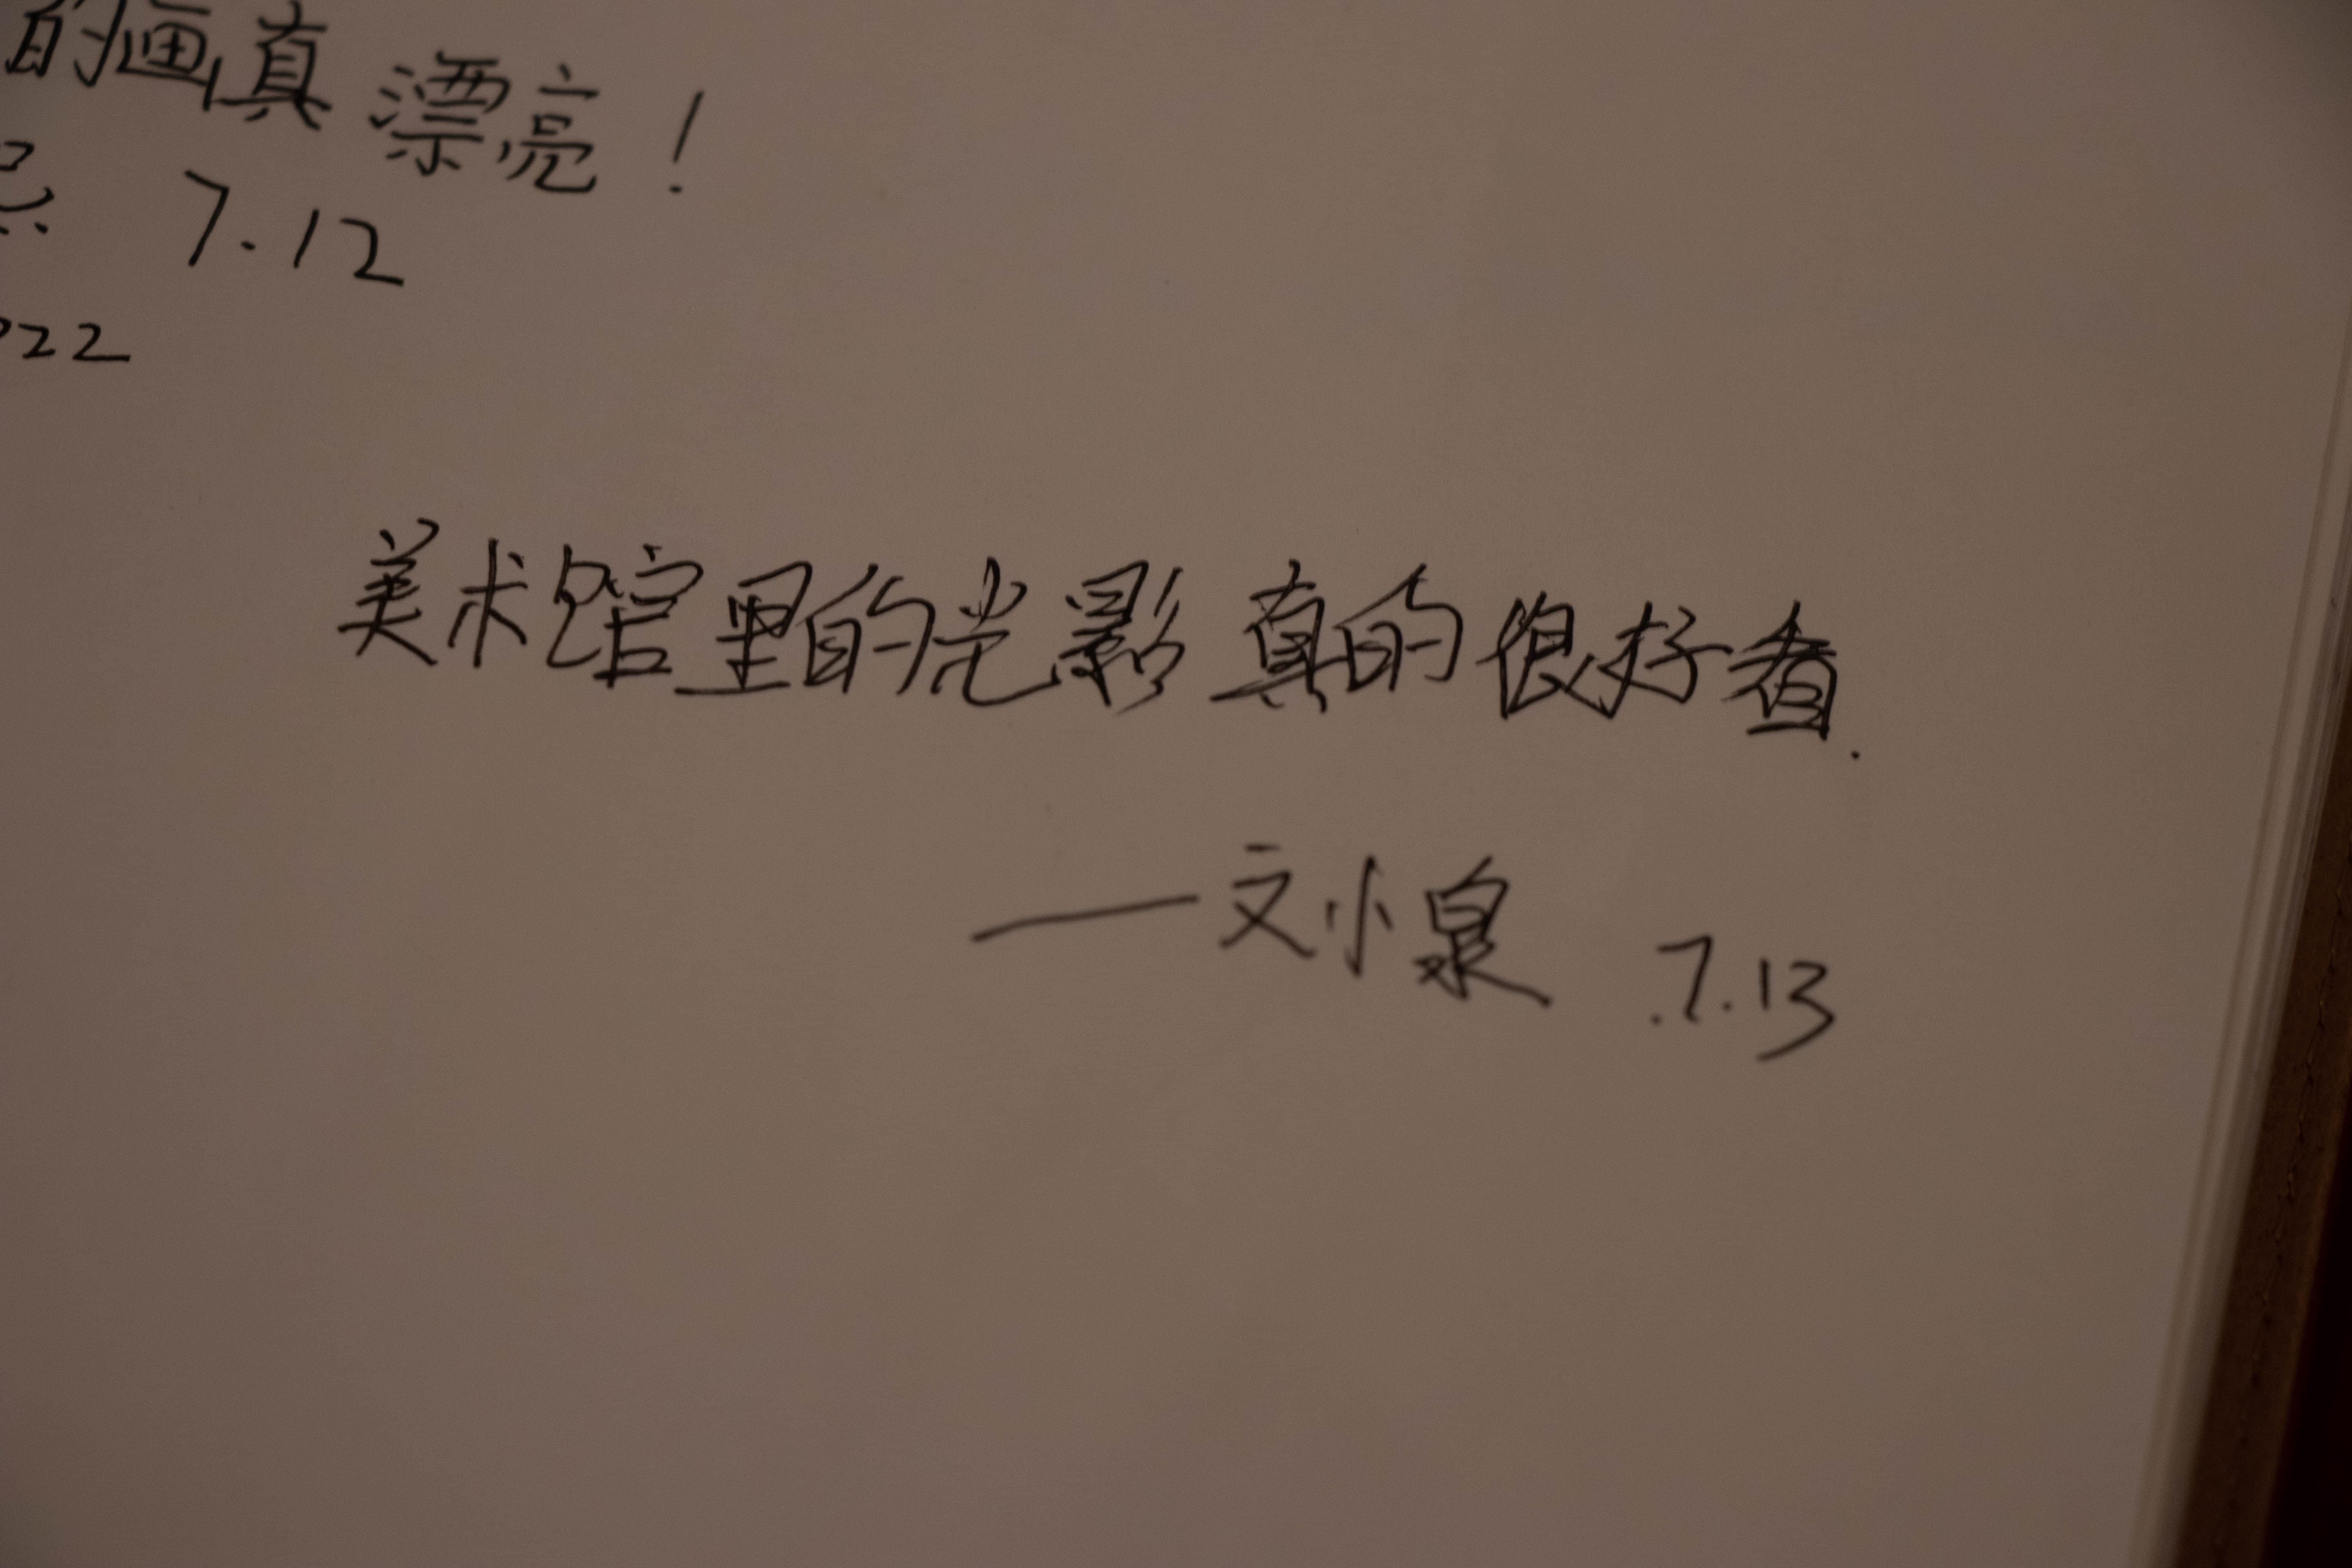 的画真漂亮！
7.12
022
美术馆里的光影真的很好看.
——文小泉 7.13